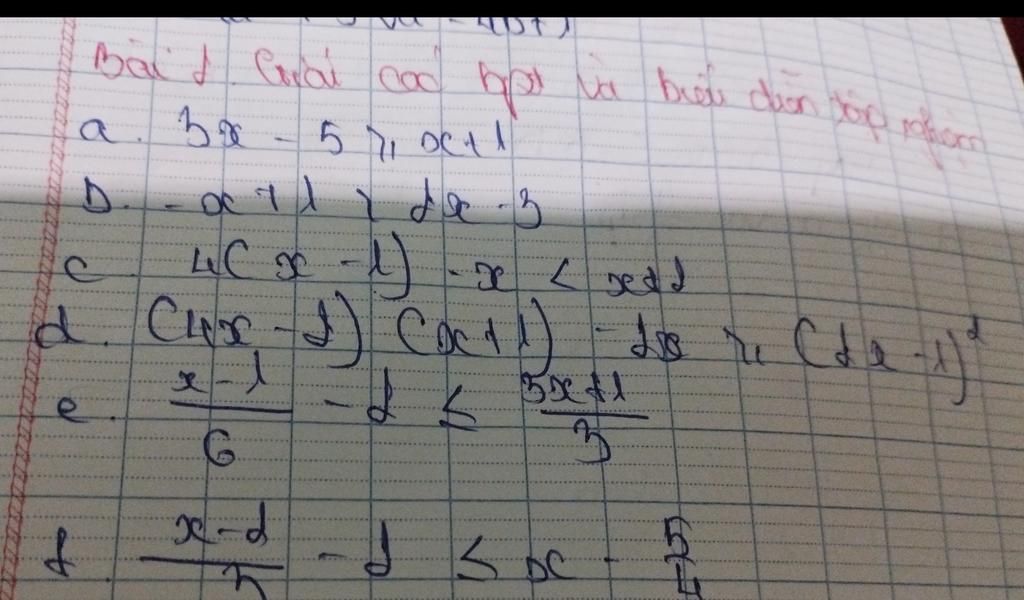 Bài 2 Giải các bpt và biểu diễn tập nghiệm
a. 3x - 5 ≥ x+1
b. -x + 1 > 2x - 3
c 4(x - 1) - x < x+2
d. (4x - 2) (x+1) - 2x ≥ (2x - 1)²
e. \frac{x-1}{6} - 2 ≤ \frac{3x+1}{3}
f. \frac{x-2}{3} - 2 ≤ x - \frac{5}{4}